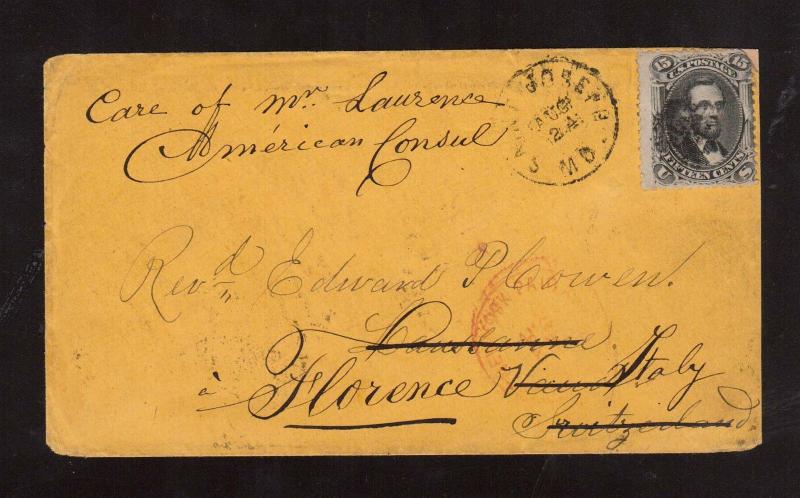 Care of Mr. Laurence
Américan Consul
SAINT JOSEPH
AUG
24
MO.
15 U.S. POSTAGE 15
FIFTEEN CENTS
U S
Revd. Edward P Cowen.
Lausanne
à Florence Vaud Italy
Switzerland